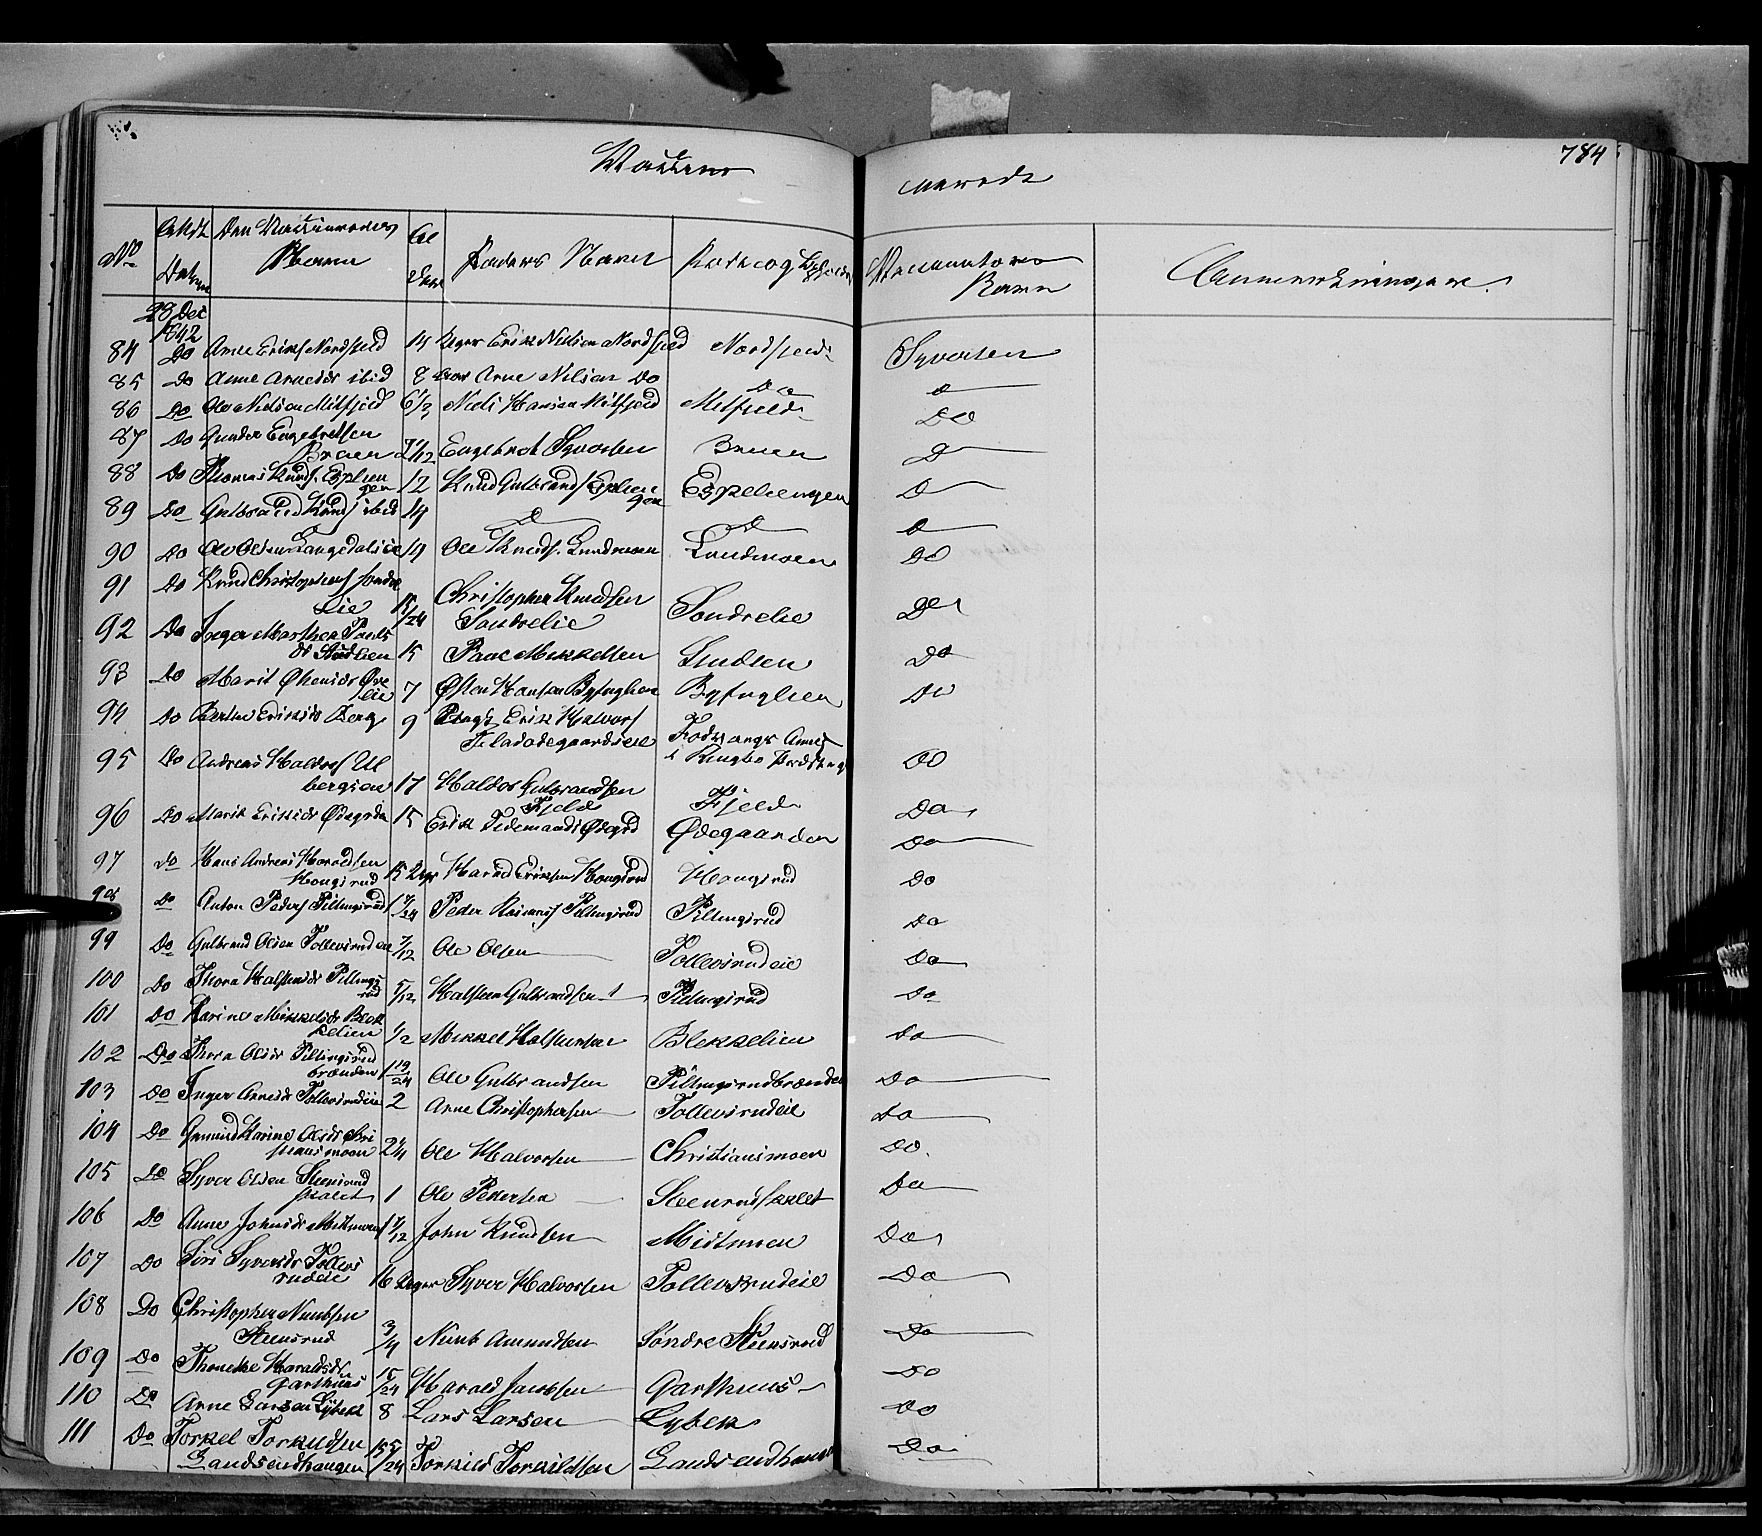 784
Vaccine
rerede
No
Attest Datum
Den Vaccineredes Navn
Al der
Faders Navn
Fødested og Opholds
Vaccinators Navn
Anmærkninger
29 Dec 1842
84 Do Arne Eriks Nordfjeld 14 Erik Nielsen Nordfjeld Nordfjeld Syversen
85 Do Anne Arnesdr ibid 8 Arne Nilsen Do Do D
86 Do Ole Nielsen Milfjeld 6 1/2 Niels Hansen Milfjeld Milfjeld Do
87 Do Gunder Engebretsen Bruen Engebret Syversen Bruen D
88 Do Thomas Knuds. Espelien gen 12 Knud Gulbrands Espelien gen Espeliengen D
89 Do Gulbrand Knuds ibid 14 D D D
90 Do Ole Olsen Langedalseie 14 Ole Knuds. Lundmoen Lundmoen Do
91 Do Knud Christophers Søndre Lie 15/24 Christopher Knudsen Søndrelie Søndrelie Do
92 Do Inger Marthea Pauls dr Lindlien 15 Paul Mikkelsen Lindlien Do
93 Do Marit Østensdr Øvre Lie 7 Østen Hansen Byfuglien Byfuglien Do
94 Do Berthe Eriksdr Berg 9 Erik Halvors Fladødegaardseie
95 Do Andreas Haldors Ul bergseie 17 Haldor Gulbrandsen Fjeld Fjeld Do
96 Do Marit Eriksdr Ødegrdn 15 Erik Tidemands Ødegrd Ødegaarden Do
97 Do Hans Andreas Haraldsen Hougsrud 15 Harald Eriksen Hougsrud Hougsrud Do
98 Do Anton Peders Pillingsrud 1 7/24 Peder Pillingsrud Pillingsrud Do
99 Do Gulbrand Olsen Tollevsrudeie 7/12 Ole Olsen Tollevsrudeie Do
100 Do Thora Halstensdr Pillings rud 5/12 Halsteen Gulbrandsen Pillingsrud Do
101 Do Karine Mikkelsdr Blek kelien 1/2 Mikkel Halstensen Blekkelien Do
102 Do Thora Olsdr Pillingsrud brænden 1 19/24 Ole Gulbrandsen Pillingsrudbrænden Do
103 Do Inger Arnesdr Tollevsrudeie 2 Arne Christophersen Tollevsrudeie Do
104 Do Gunild Karine Olsdr Chri stiansmoen 2 1/4 Ole Halvorsen Christiansmoen Do.
105 Do Syver Olsen Steensrud Ole Pedersen Steensrud Do
106 Do Anne Johnsdr Midtmoen 1 7/12 John Knudsen Midtmoen Do
107 Do Siri Syversdr Tollevs rudeie 16 Syver Halvorsen Tollevsrudeie Do
108 Do Christopher Nubsen Steensrud 3/4 Nub Amundsen Søndre Steensrud Do
109 Do Thonette Haraldsdr Garthuus 15/24 Harald Jacobsen Garthuus Do
110 Do Arne Larsen Lybek 8 Lars Larsen Lybek Do
111 Do Torkel Torkildsen Landsendhaugen Torkild Torkildsen Landsendhaugen Do